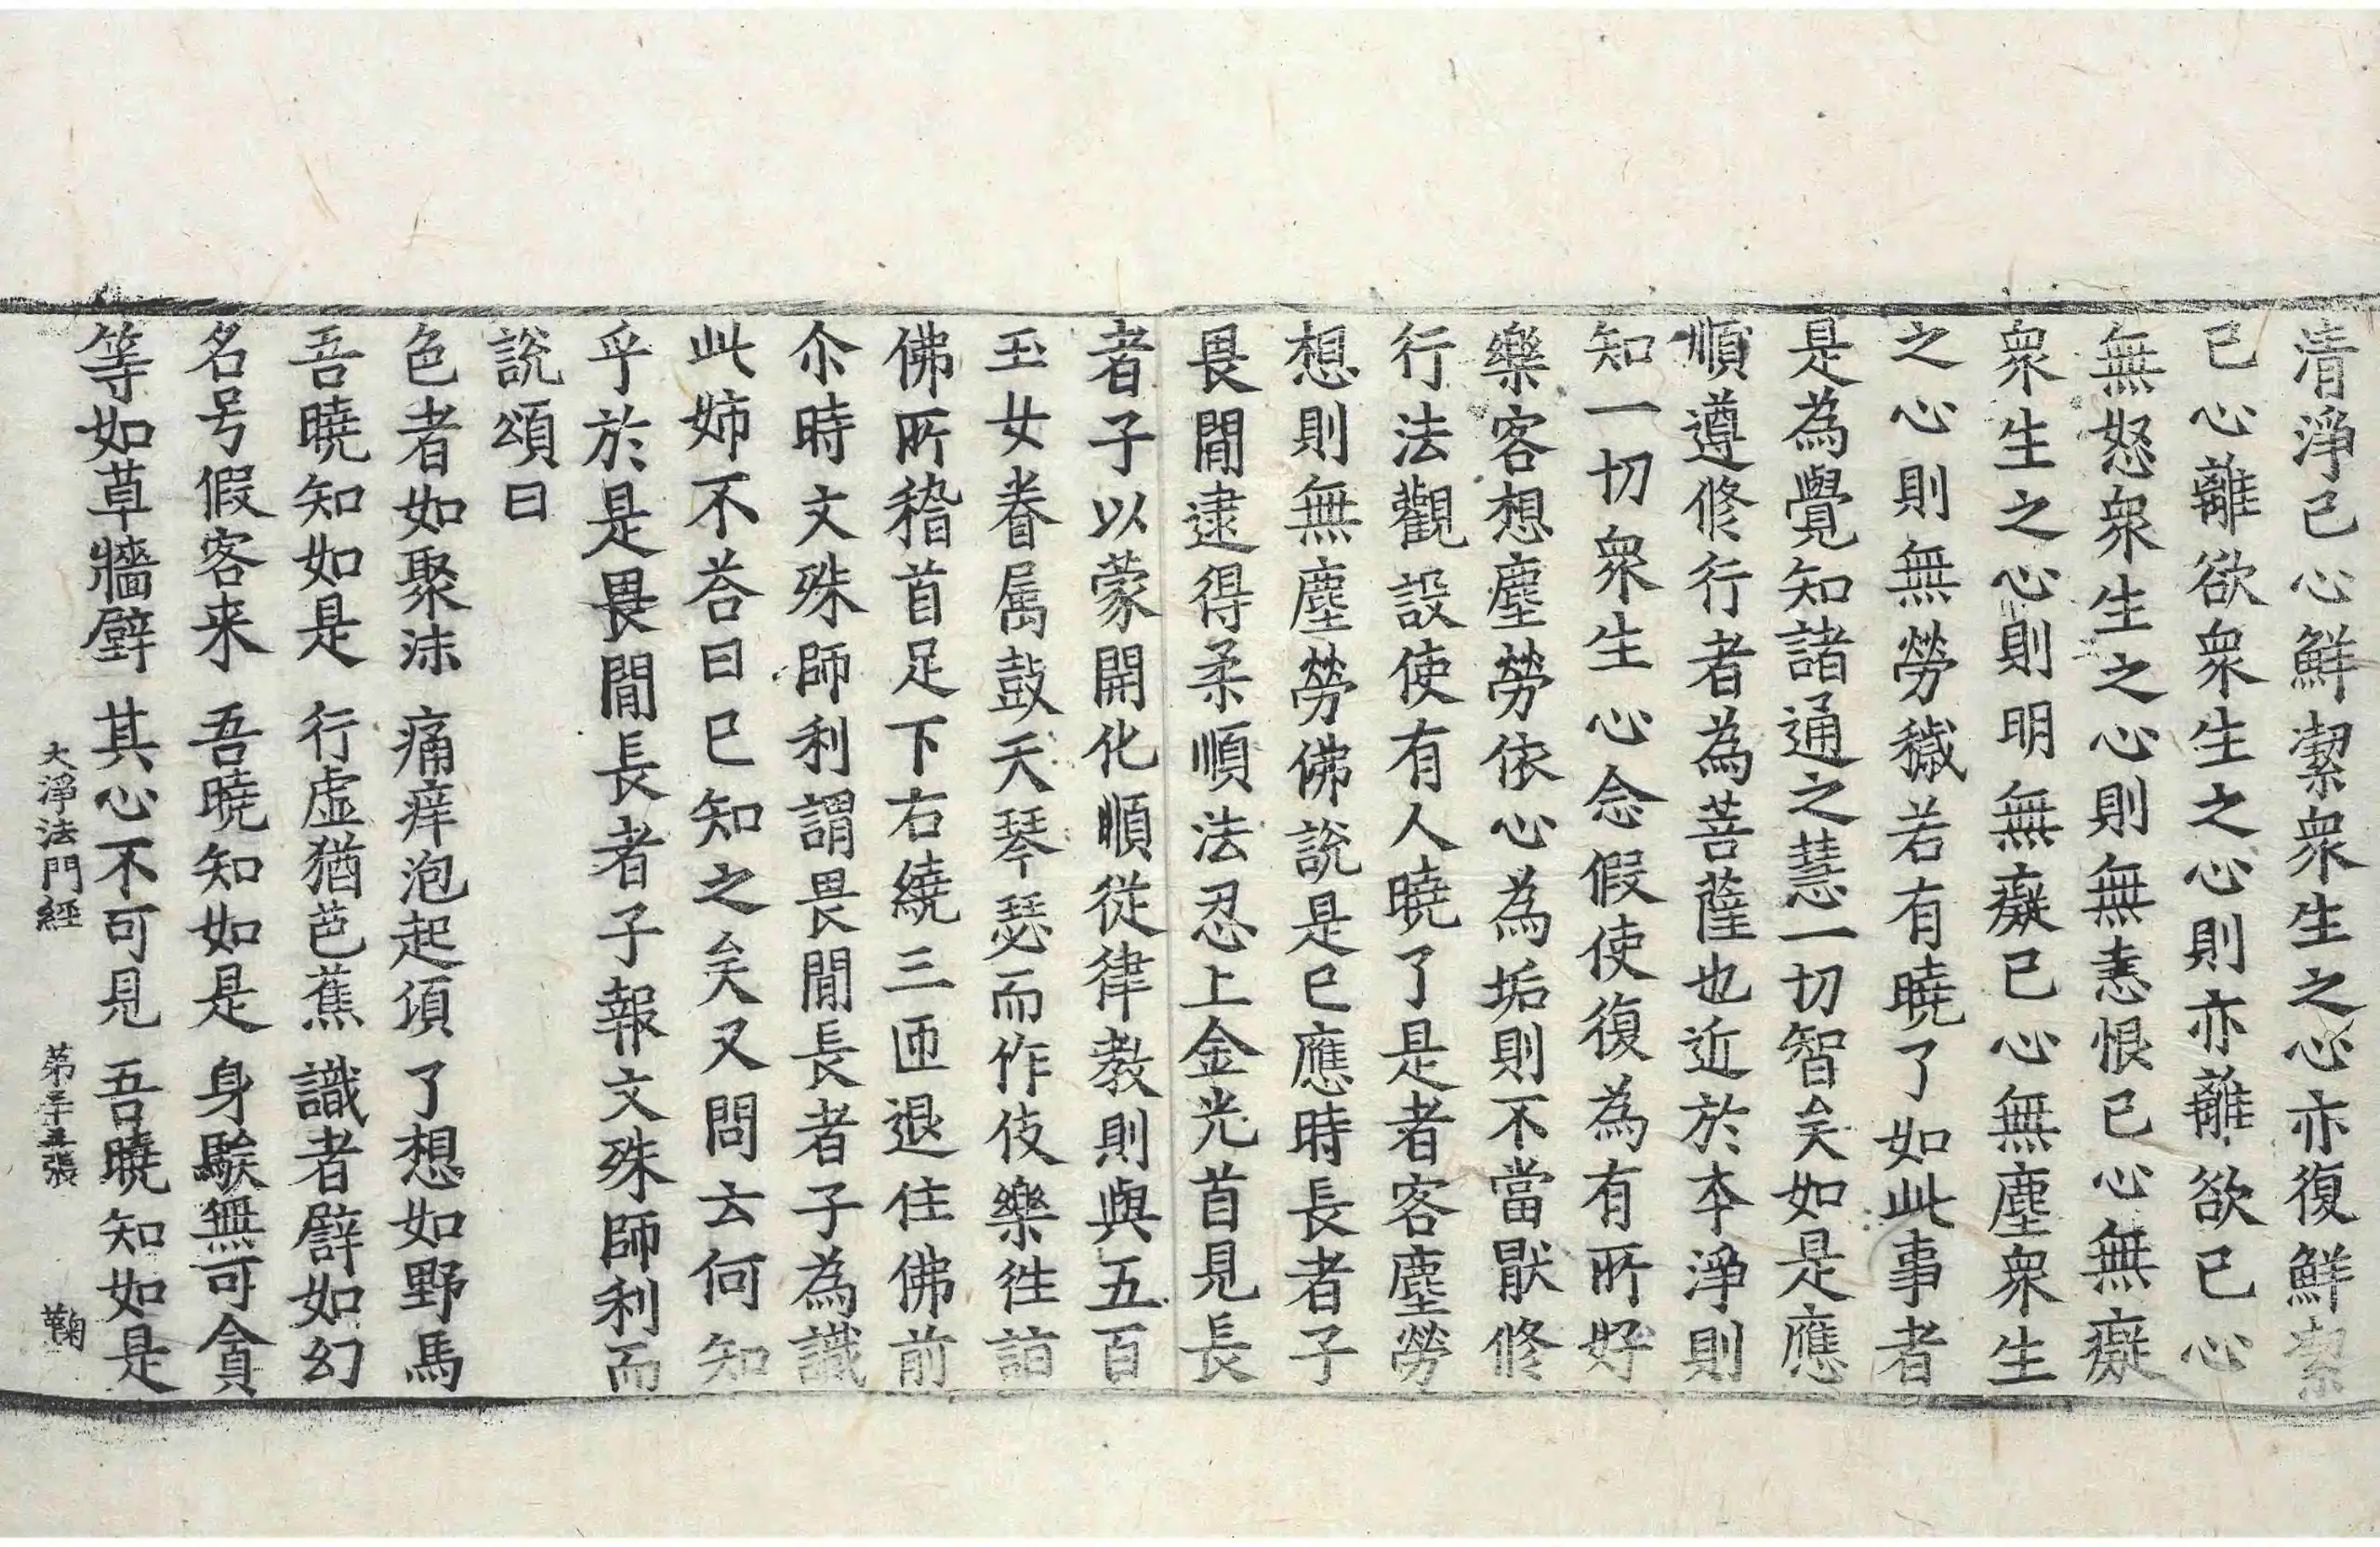 清淨已心鮮潔衆生之心亦復鮮潔
已心離欲衆生之心則亦離欲已心
無怒衆生之心則無恚恨已心無癡
衆生之心則明無癡已心無塵衆生
之心則無勞穢若有曉了如此事者
是為覺知諸通之慧一切智矣如是應
順遵修行者為菩薩也近於本淨則
知一切衆生心念假使復為有所好
樂客想塵勞依心為垢則不當猒修
行法觀設使有人曉了是者客塵勞
想則無塵勞佛說是已應時長者子
畏閒逮得柔順法忍上金光首見長
者子以蒙開化順從律教則與五百
玉女眷属鼓天琴瑟而作伎樂往詣
佛所稽首足下右繞三匝退住佛前
尒時文殊師利謂畏閒長者子為識
此姉不荅曰已知之矣又問云何知
乎於是畏閒長者子報文殊師利而
說頌曰
色者如聚沫　痛痒泡起頃　了想如野馬
吾曉知如是　行虛猶芭蕉　識者譬如幻
名号假客来　吾曉知如是　身騃無可貪
等如草牆壁　其心不可見　吾曉知如是
大淨法門經　第二十五張　鞠